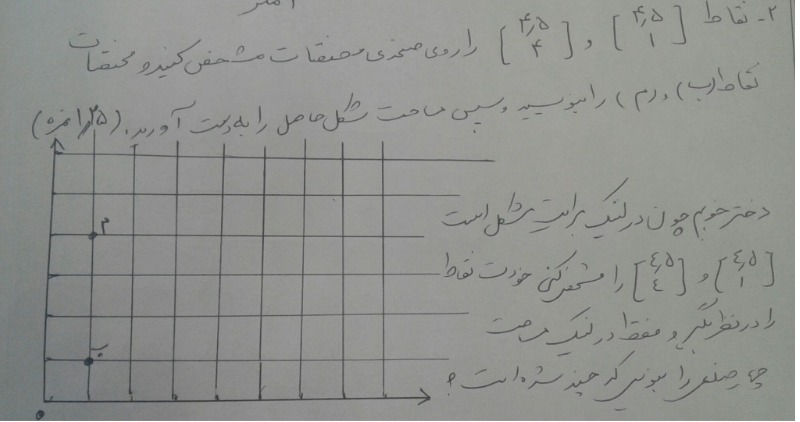 ۲- نقاط [۴٫۵ ۱] و [۴٫۵ ۴] را روی صفحه‌ی مختصات مشخص کنید و مختصات
نقاط (ب) و (م) را بنویسید و سپس مساحت شکل حاصل را به دست آورید. (۱٫۲۵ نمره)
دختر خوبم چون در لینک برایت مشکل است
[۴٫۵ ۱] و [۴٫۵ ۴] را مشخص کنی خودت نقاط
را در نظر بگیر و فقط در لینک مساحت
چهارضلعی را بنویس که چند شده است؟
م
ب
۰